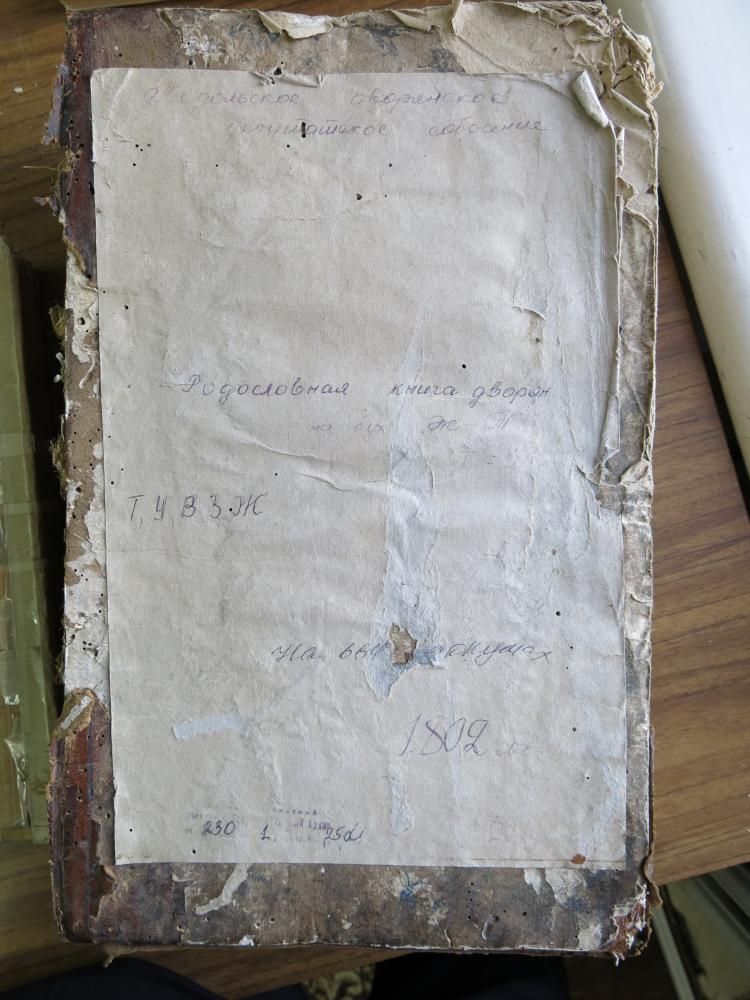 Подольское дворянское
депутатское собрание
Родословная книга дворян
на Ж - Т
Т, У, В, З, Ж
На аркушах
1802
230 1.